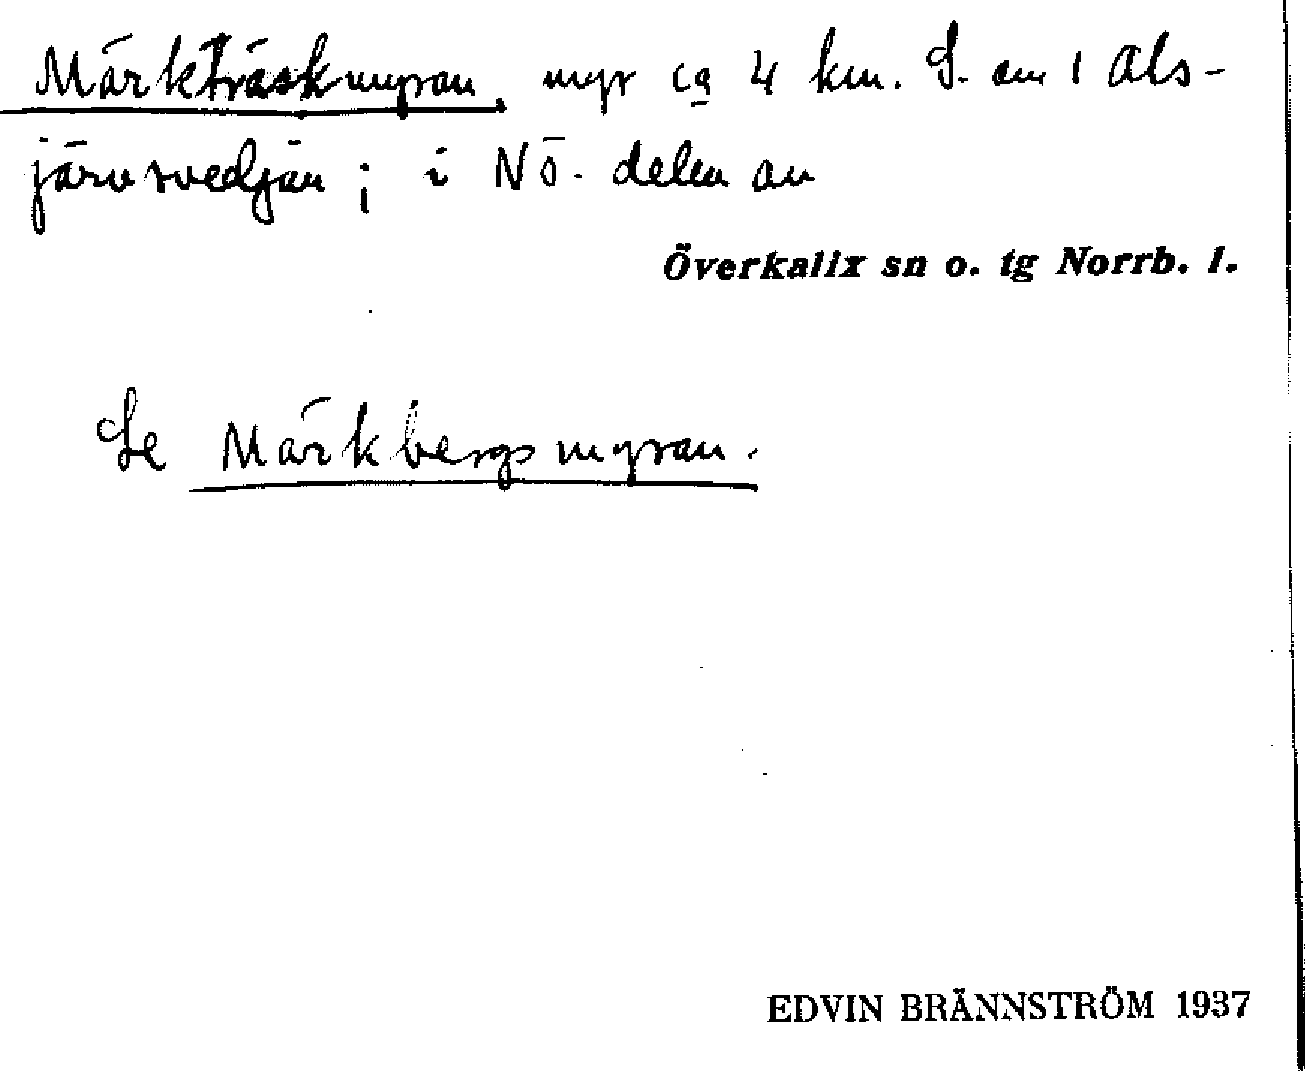 Märkträskmyran, myr ca 4 km. S. om 1 Als-
järvsvedjan; i NÖ. delen av
Överkalix sn o. tg Norrb. l.
Se Märkbergsmyran.
EDVIN BRÄNNSTRÖM 1937